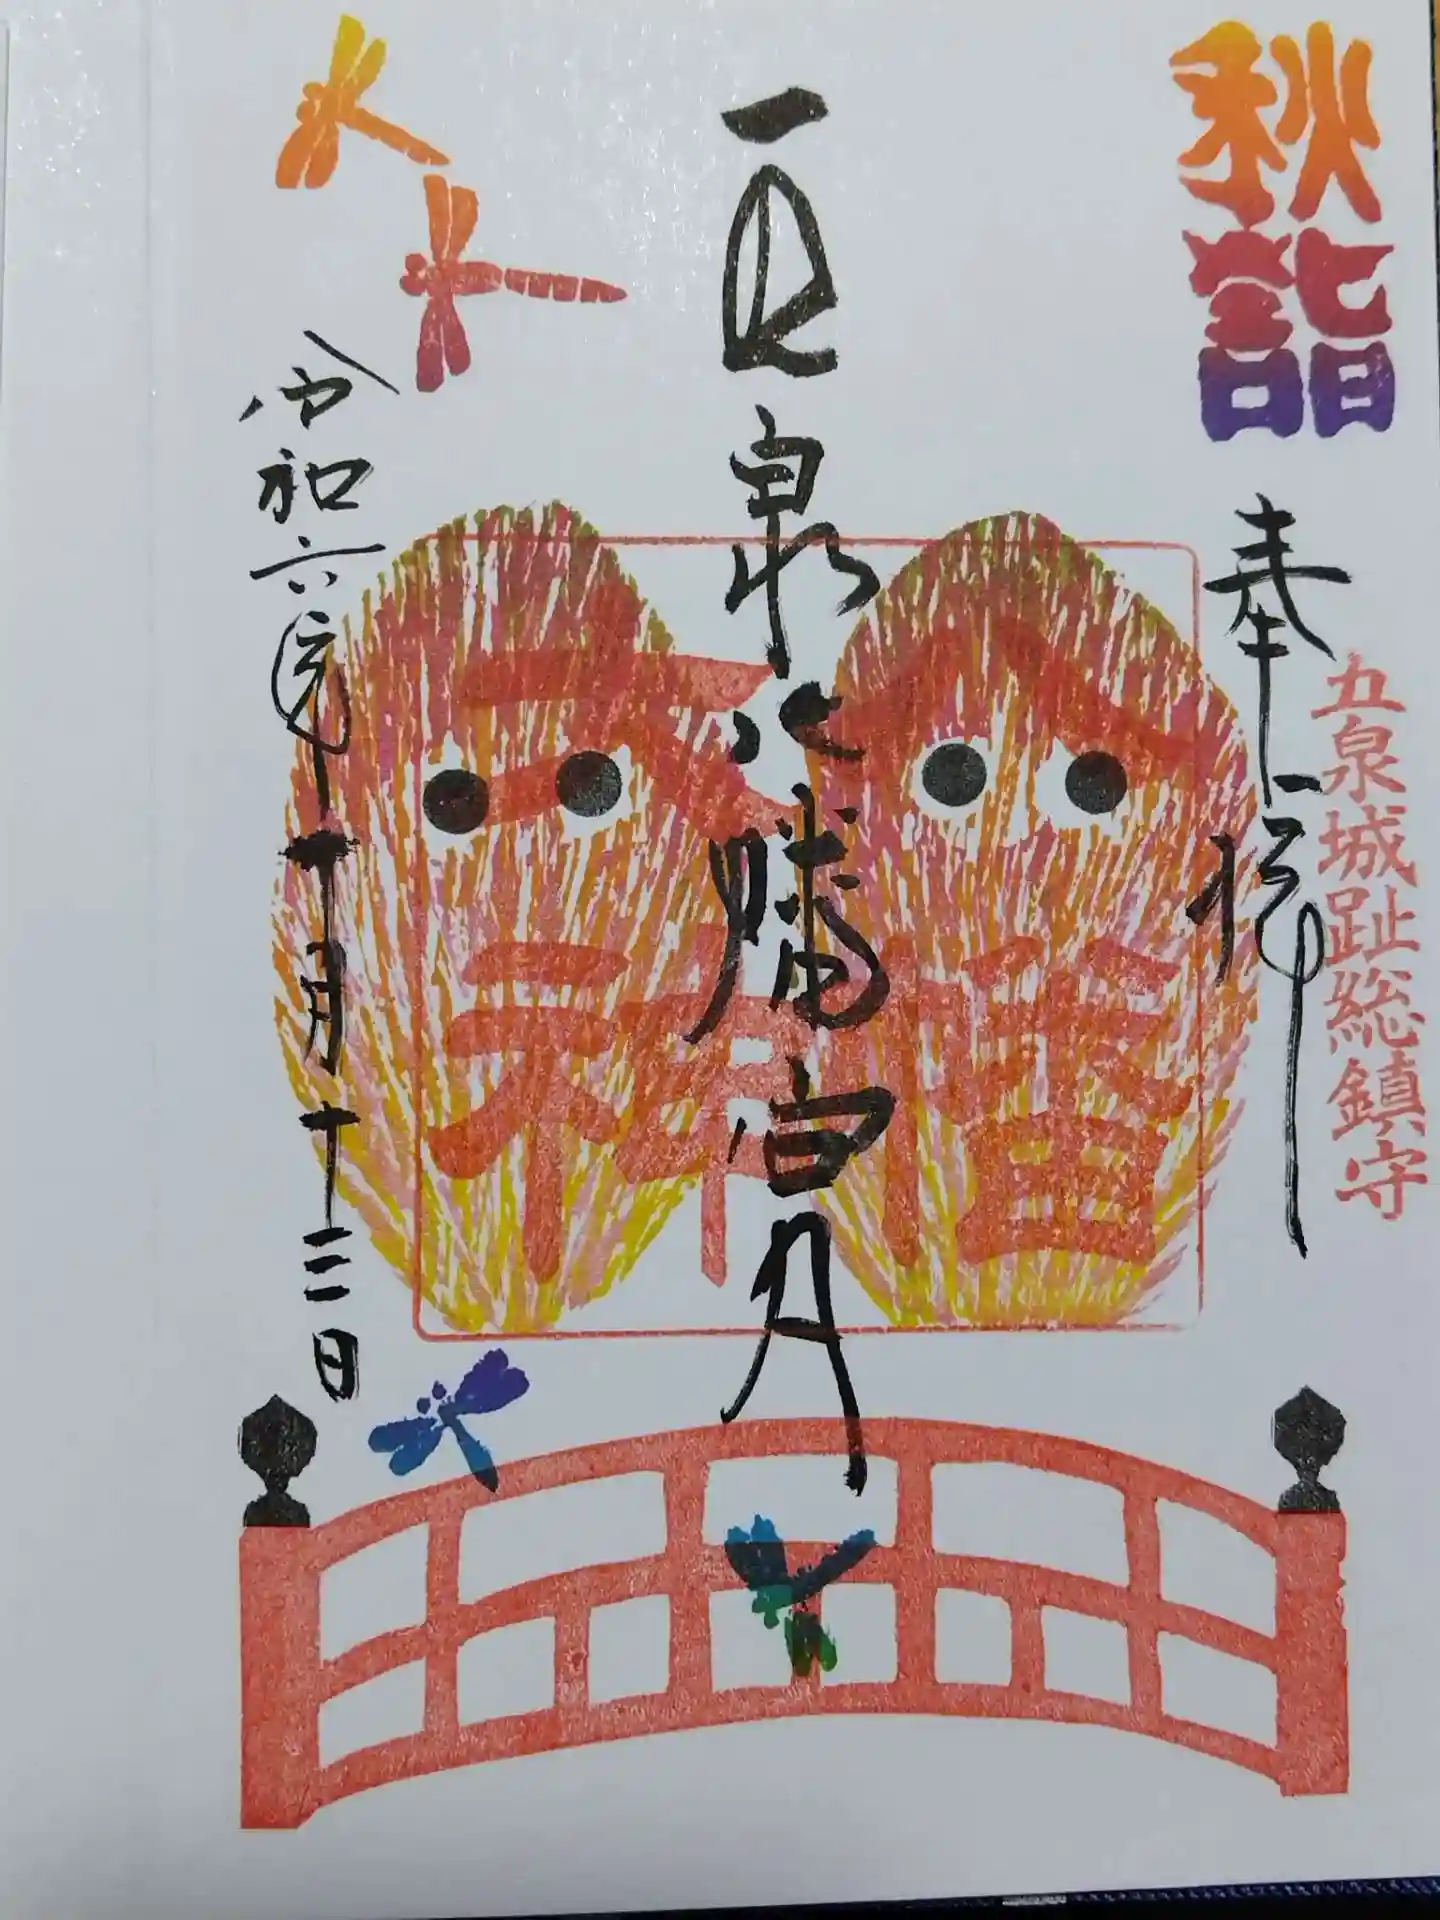 秋詣
五泉城趾総鎮守
奉拝
五泉八幡宮
八幡
神
令和六年十月十三日